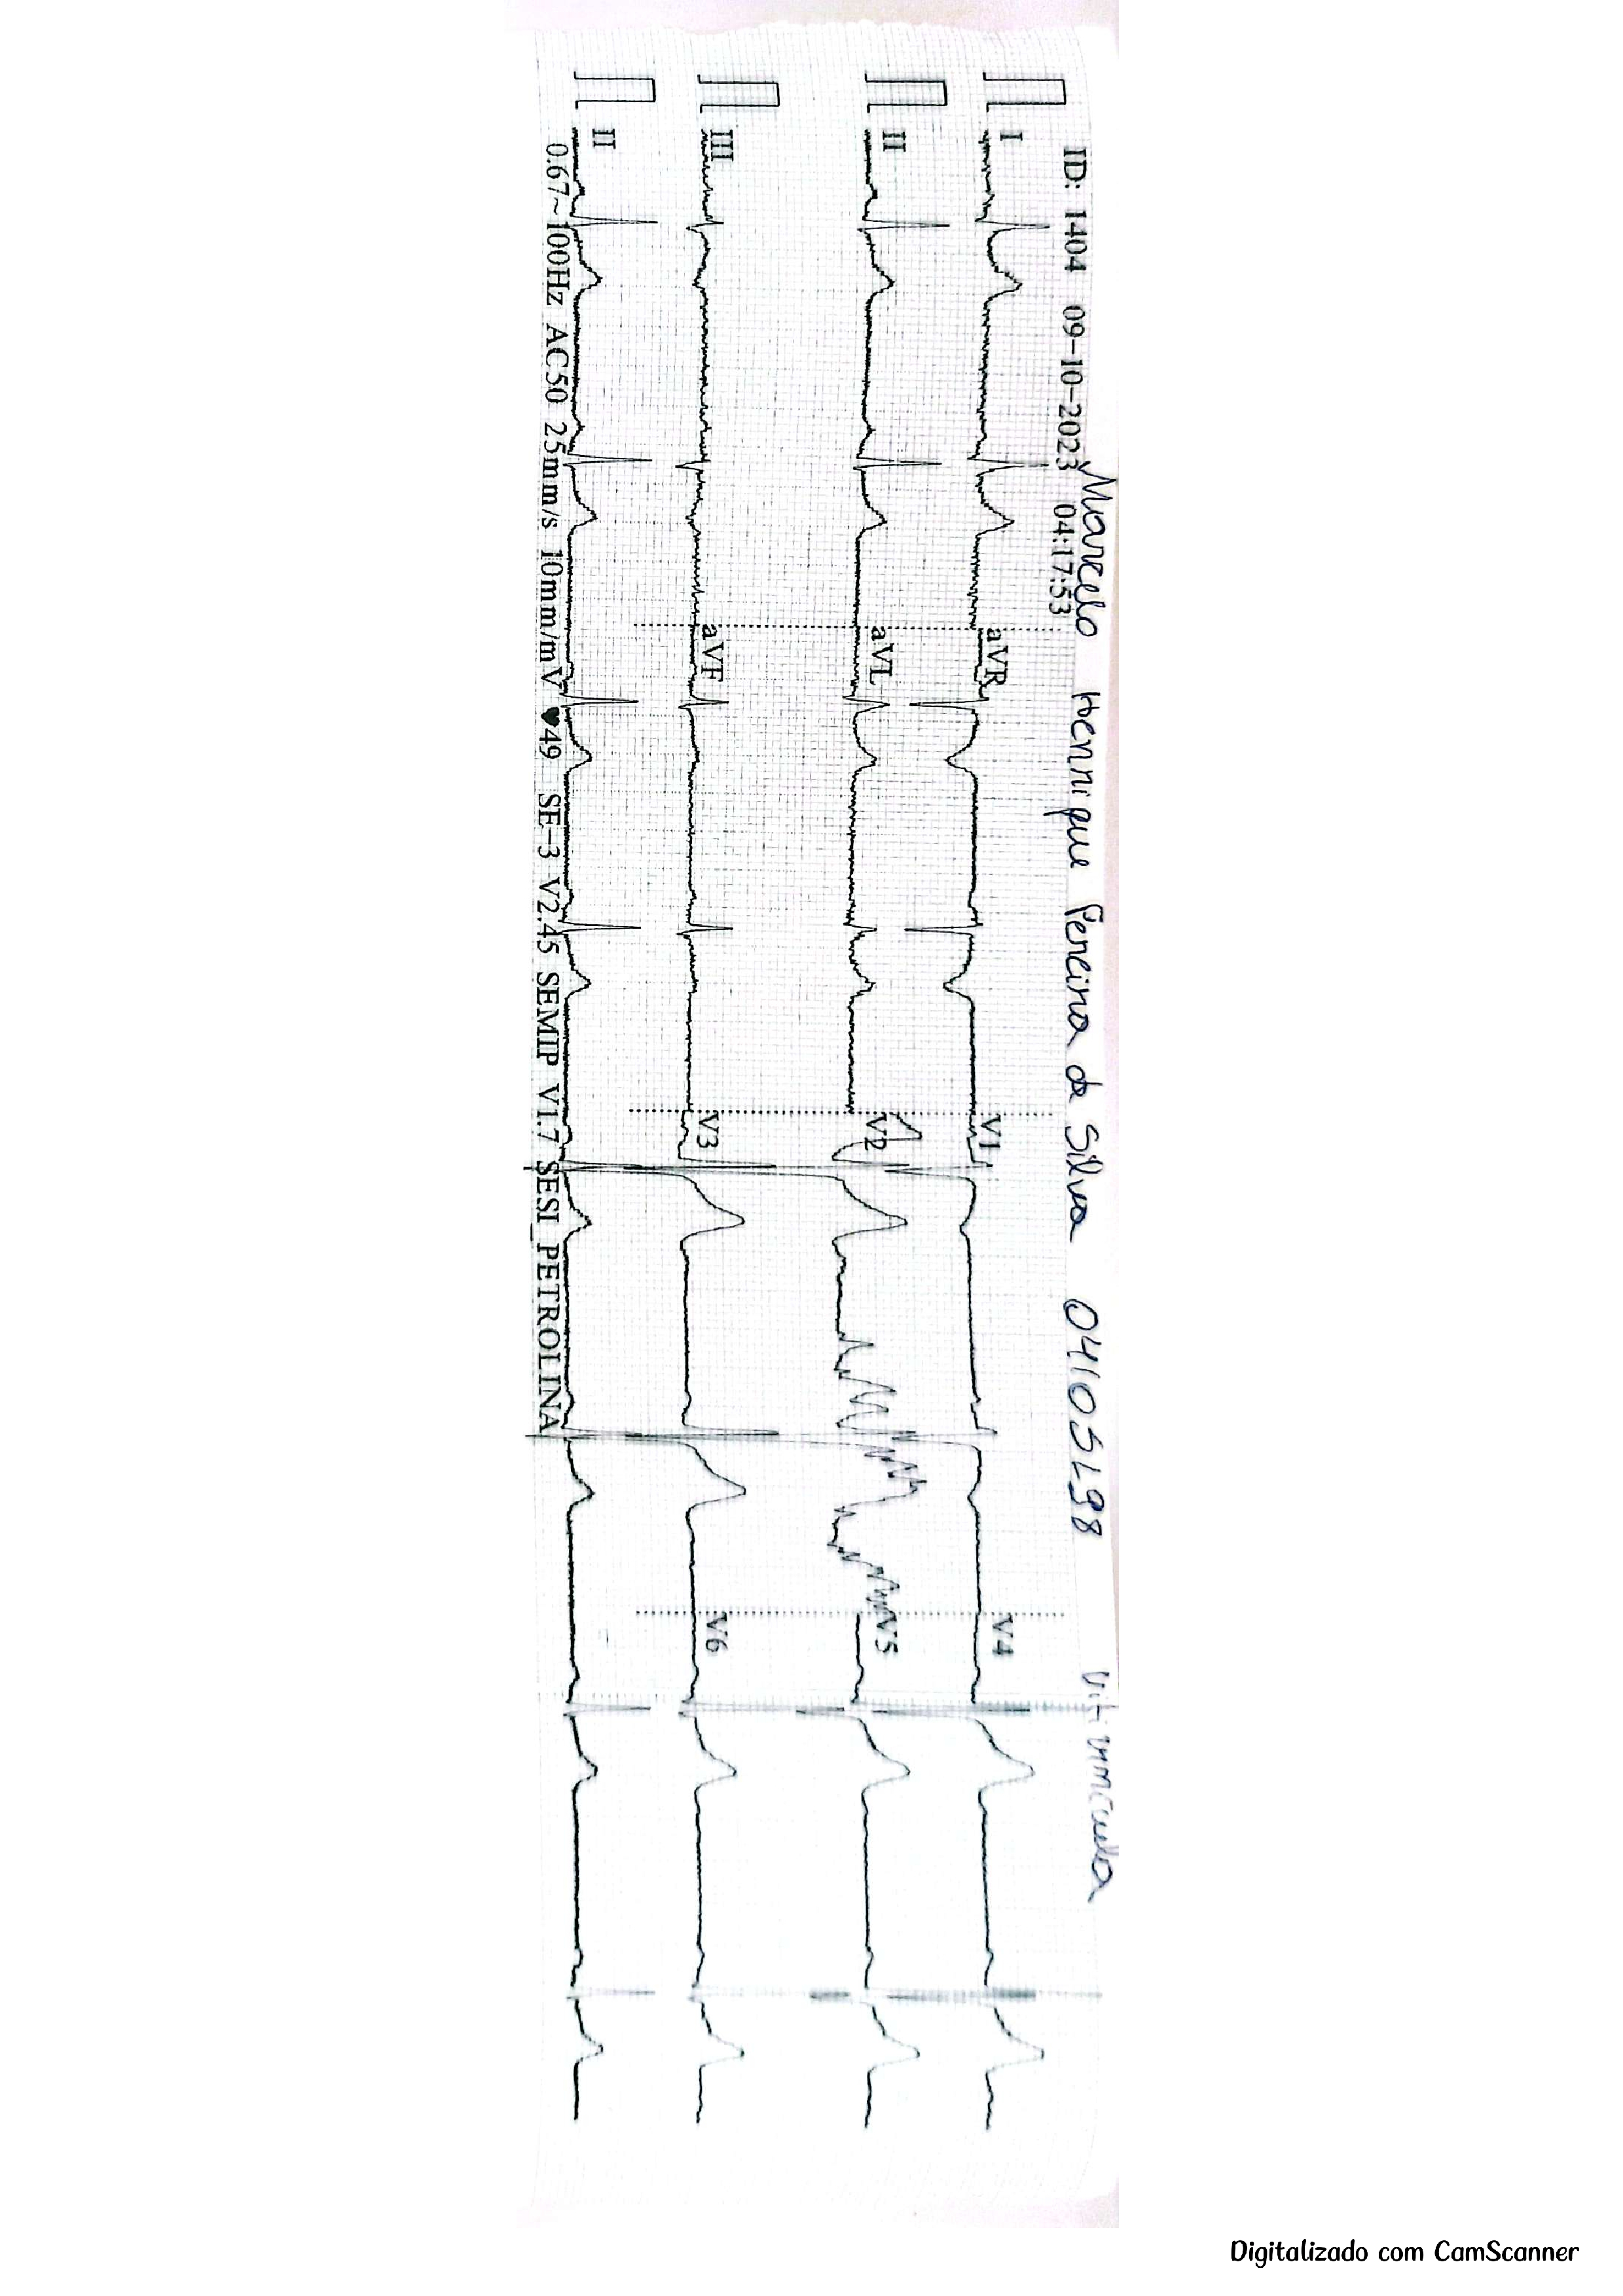 Marcelo Henrique Pereira da Silva 04105198
ID: 1404 09-10-2023 04:17:53
I aVR V1 V4
II aVL V2 V5
III aVF V3 V6
II
0.67~100Hz AC50 25mm/s 10mm/mV ♥49 SE-3 V2.45 SEMIP V1.7 SESI_PETROLINA
Digitalizado com CamScanner